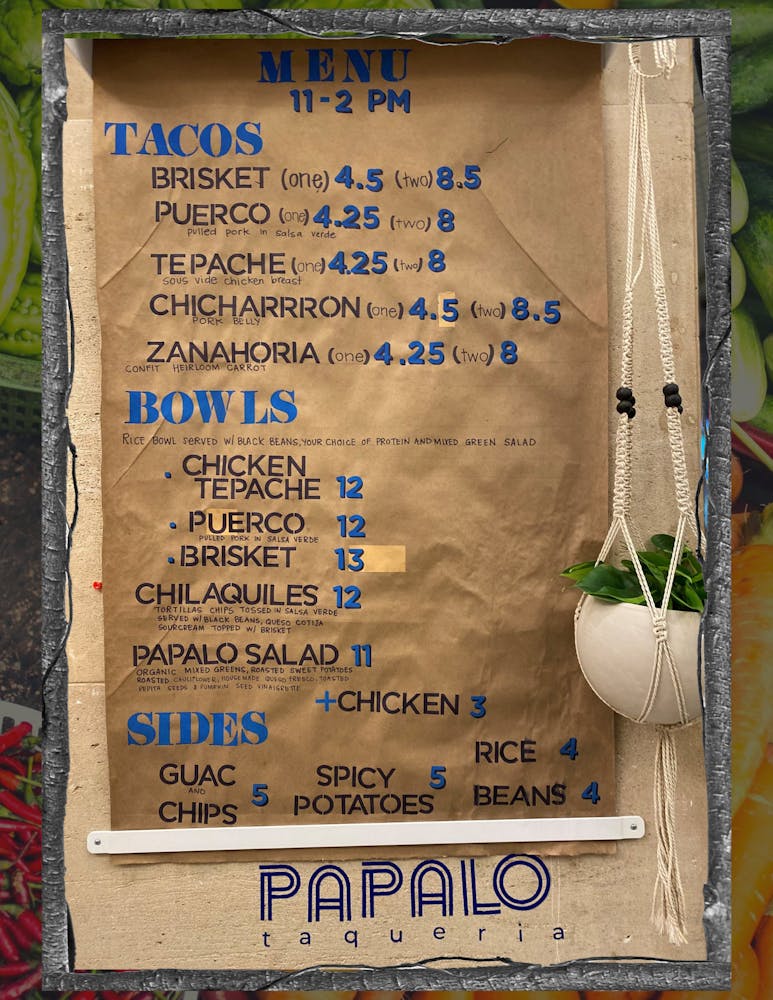 MENU
11-2 PM
TACOS
BRISKET (one) 4.5 (two) 8.5
PUERCO (one) 4.25 (two) 8
pulled pork in salsa verde
TEPACHE (one) 4.25 (two) 8
sous vide chicken breast
CHICHARRRON (one) 4.5 (two) 8.5
PORK BELLY
ZANAHORIA (one) 4.25 (two) 8
CONFIT HEIRLOOM CARROT
BOWLS
RICE BOWL SERVED W/ BLACK BEANS, YOUR CHOICE OF PROTEIN AND MIXED GREEN SALAD
• CHICKEN
TEPACHE 12
• PUERCO 12
PULLED PORK IN SALSA VERDE
• BRISKET 13
CHILAQUILES 12
TORTILLAS CHIPS TOSSED IN SALSA VERDE
SERVED W/ BLACK BEANS, QUESO COTIJA
SOURCREAM TOPPED W/ BRISKET
PAPALO SALAD 11
ORGANIC MIXED GREENS, ROASTED SWEET POTATOES
ROASTED CAULIFLOWER, HOUSEMADE QUESO FRESCO, TOASTED
PEPITA SEEDS & PUMPKIN SEED VINAIGRETTE
+CHICKEN 3
SIDES
GUAC
AND
CHIPS 5
SPICY
POTATOES 5
RICE 4
BEANS 4
PAPALO
taqueria